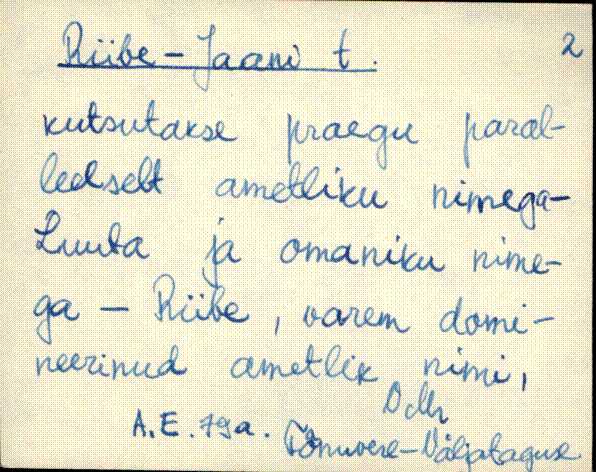 Riibe-Jaani t. 2
kutsutakse praegu paral-
leelselt ametliku nimega-
Luuta ja omaniku nime-
ga - Riibe, varem domi-
neerinud ametlik nimi,
A.E. 79a. Tõnuvere-Väljataguse